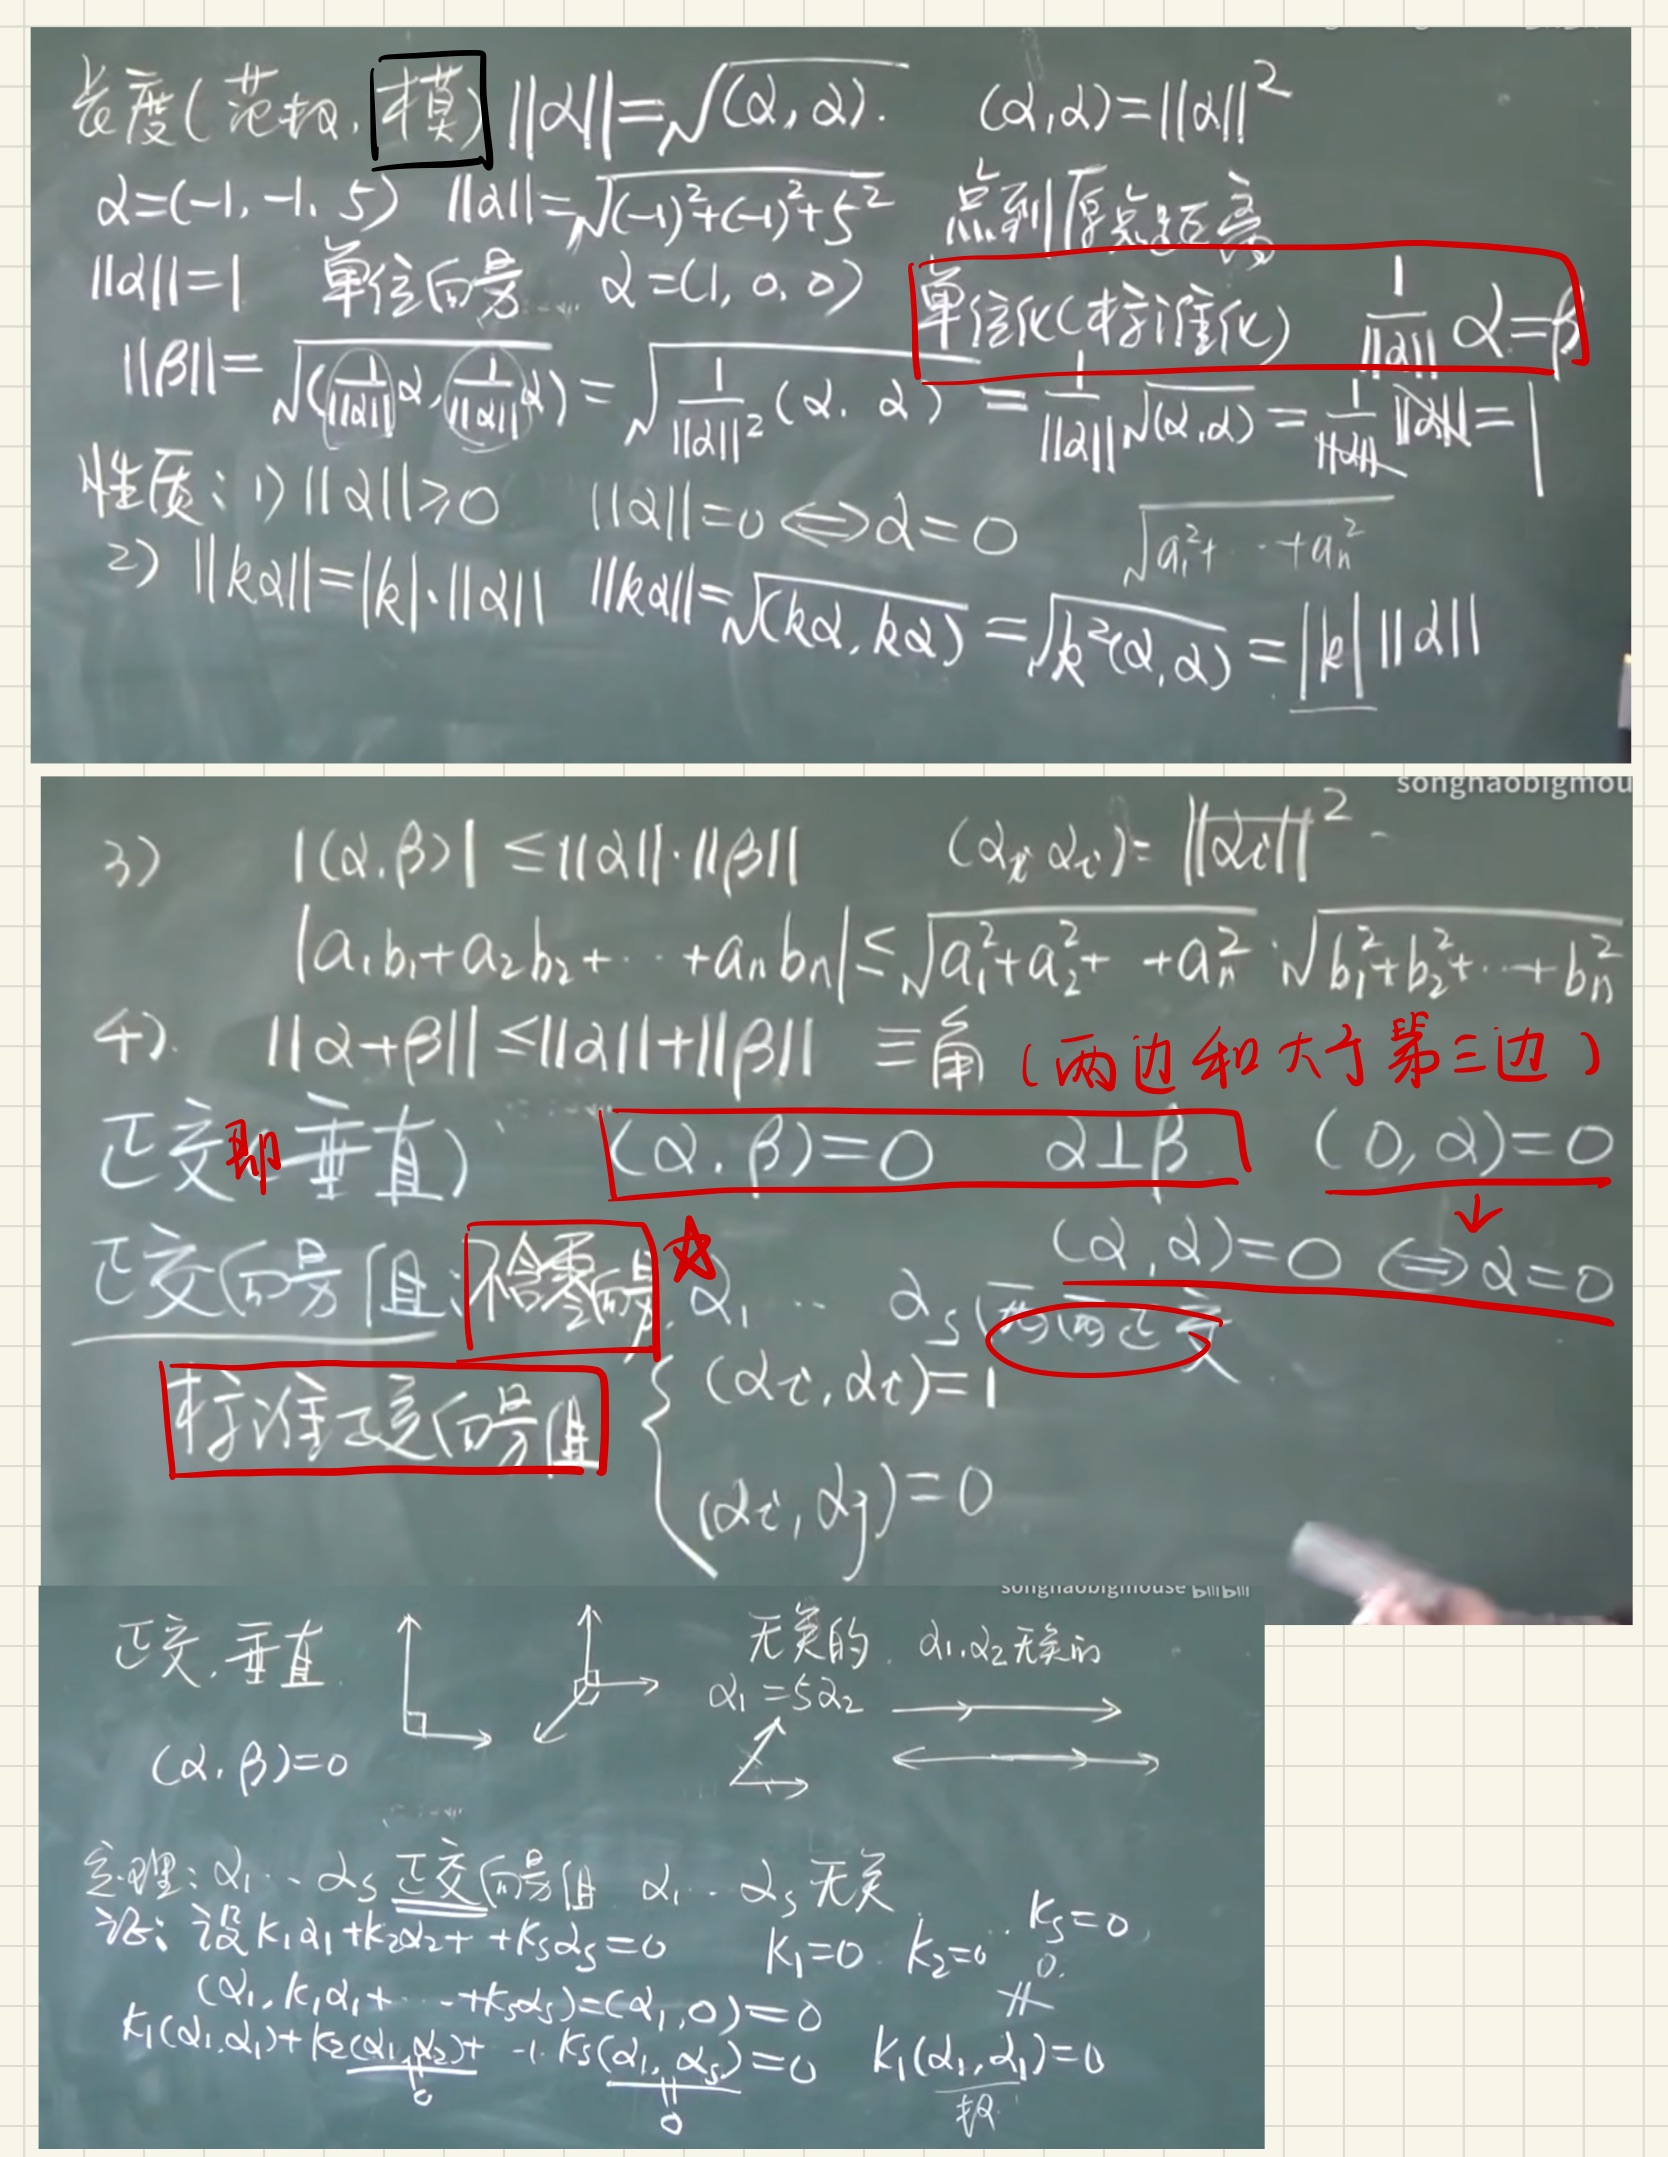 长度(范数,模) ||α||=√(α,α). (α,α)=||α||²
α=(-1,-1,5) ||α||=√(-1)²+(-1)²+5² 点到原点距离
||α||=1 单位向量 α=(1,0,0) 单位化(标准化) 1/||α|| α=β
||β||=√(1/||α|| α, 1/||α|| α)=√1/||α||² (α,α)=1/||α|| √(α,α)=1/||α|| ||α||=1
性质:1)||α||≥0 ||α||=0⇔α=0 √a₁²+··+aₙ²
2)||kα||=|k|·||α|| ||kα||=√(kα,kα)=√k²(α,α)=|k| ||α||
songhaobigmou
3) |(α,β)|≤||α||·||β|| (αᵢ αᵢ)=||αᵢ||²
|a₁b₁+a₂b₂+··+aₙbₙ|≤√a₁²+a₂²+ +aₙ² ·√b₁²+b₂²+··+bₙ²
4). ||α+β||≤||α||+||β|| 三角 (两边和大于第三边)
正交即垂直) (α,β)=0 α⊥β (0,α)=0
↓
(α,α)=0⇔α=0
正交向量组:不含零向量 ☆ α₁ ·· αₛ 两两正交
标准正交向量组 { (αᵢ,αᵢ)=1
(αᵢ,αⱼ)=0
songhaobigmouse bilibili
正交.垂直 无关的. α₁,α₂无关的
α₁=5α₂
(α,β)=0
定理:α₁··αₛ正交向量组 α₁··αₛ无关
证:设k₁α₁+k₂α₂+ +kₛαₛ=0 k₁=0 k₂=0 ·· kₛ=0
(α₁,k₁α₁+··+kₛαₛ)=(α₁,0)=0
k₁(α₁,α₁)+k₂(α₁,α₂)+··kₛ(α₁,αₛ)=0 k₁(α₁,α₁)=0
0 0